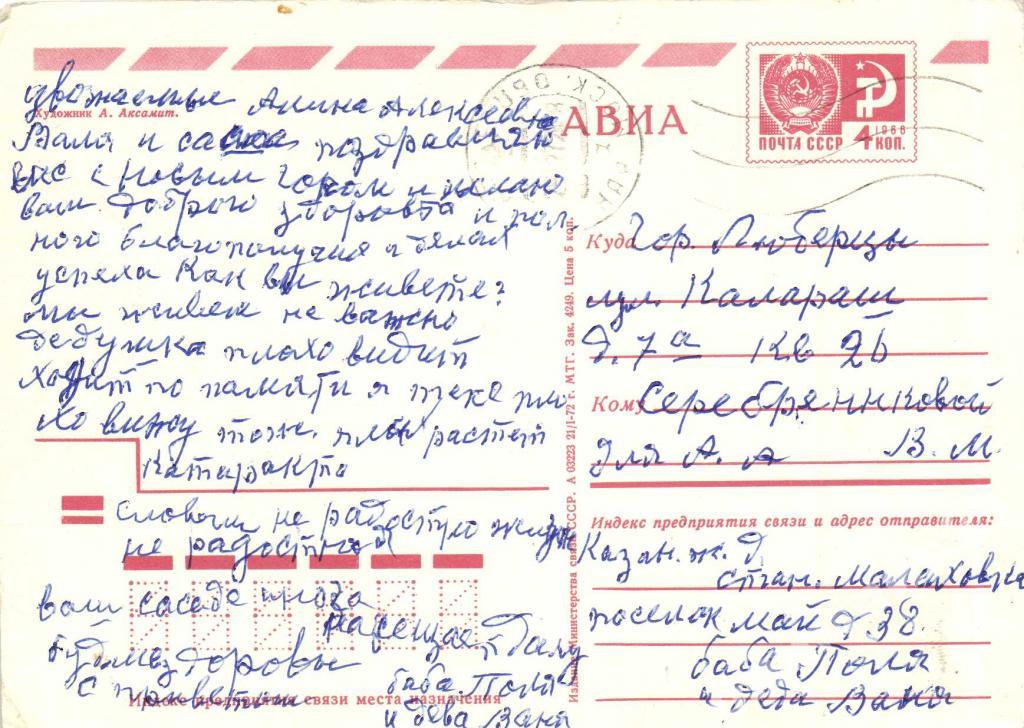 уважаемые Анина Алексеевна
Художник А. Аксамит.
Валя и саша поздравляю
вас с новым Годом и желаю
вам доброго здоровья и пол
ного благополучия в делах
успеха Как вы живете?
мы живем не важно
дедушка плохо видит
ходит по памяти я тоже пло
хо вижу тоже. растет
Катаракта
словом не радостную жизн
не радостной
ваш соседе иногда
посещает Баку
будте здоровы
с приветом
баба. Поля
и дева Ваня
АВИА
ПОЧТА СССР 4 КОП.
1966
Куда Гор. Люберцы
ул. Калараш
д. 7а кв 26
Кому Серебренниковой
для А. А В. М.
Индекс предприятия связи и адрес отправителя:
Казан. ж. д.
стан. Малаховка
поселок май д 38.
баба Поля
и деда Ваня
Индекс предприятия связи места назначения
Издание Министерства связи СССР. А 03223 21/I-72 г. МТГ. Зак. 4249. Цена 5 коп.